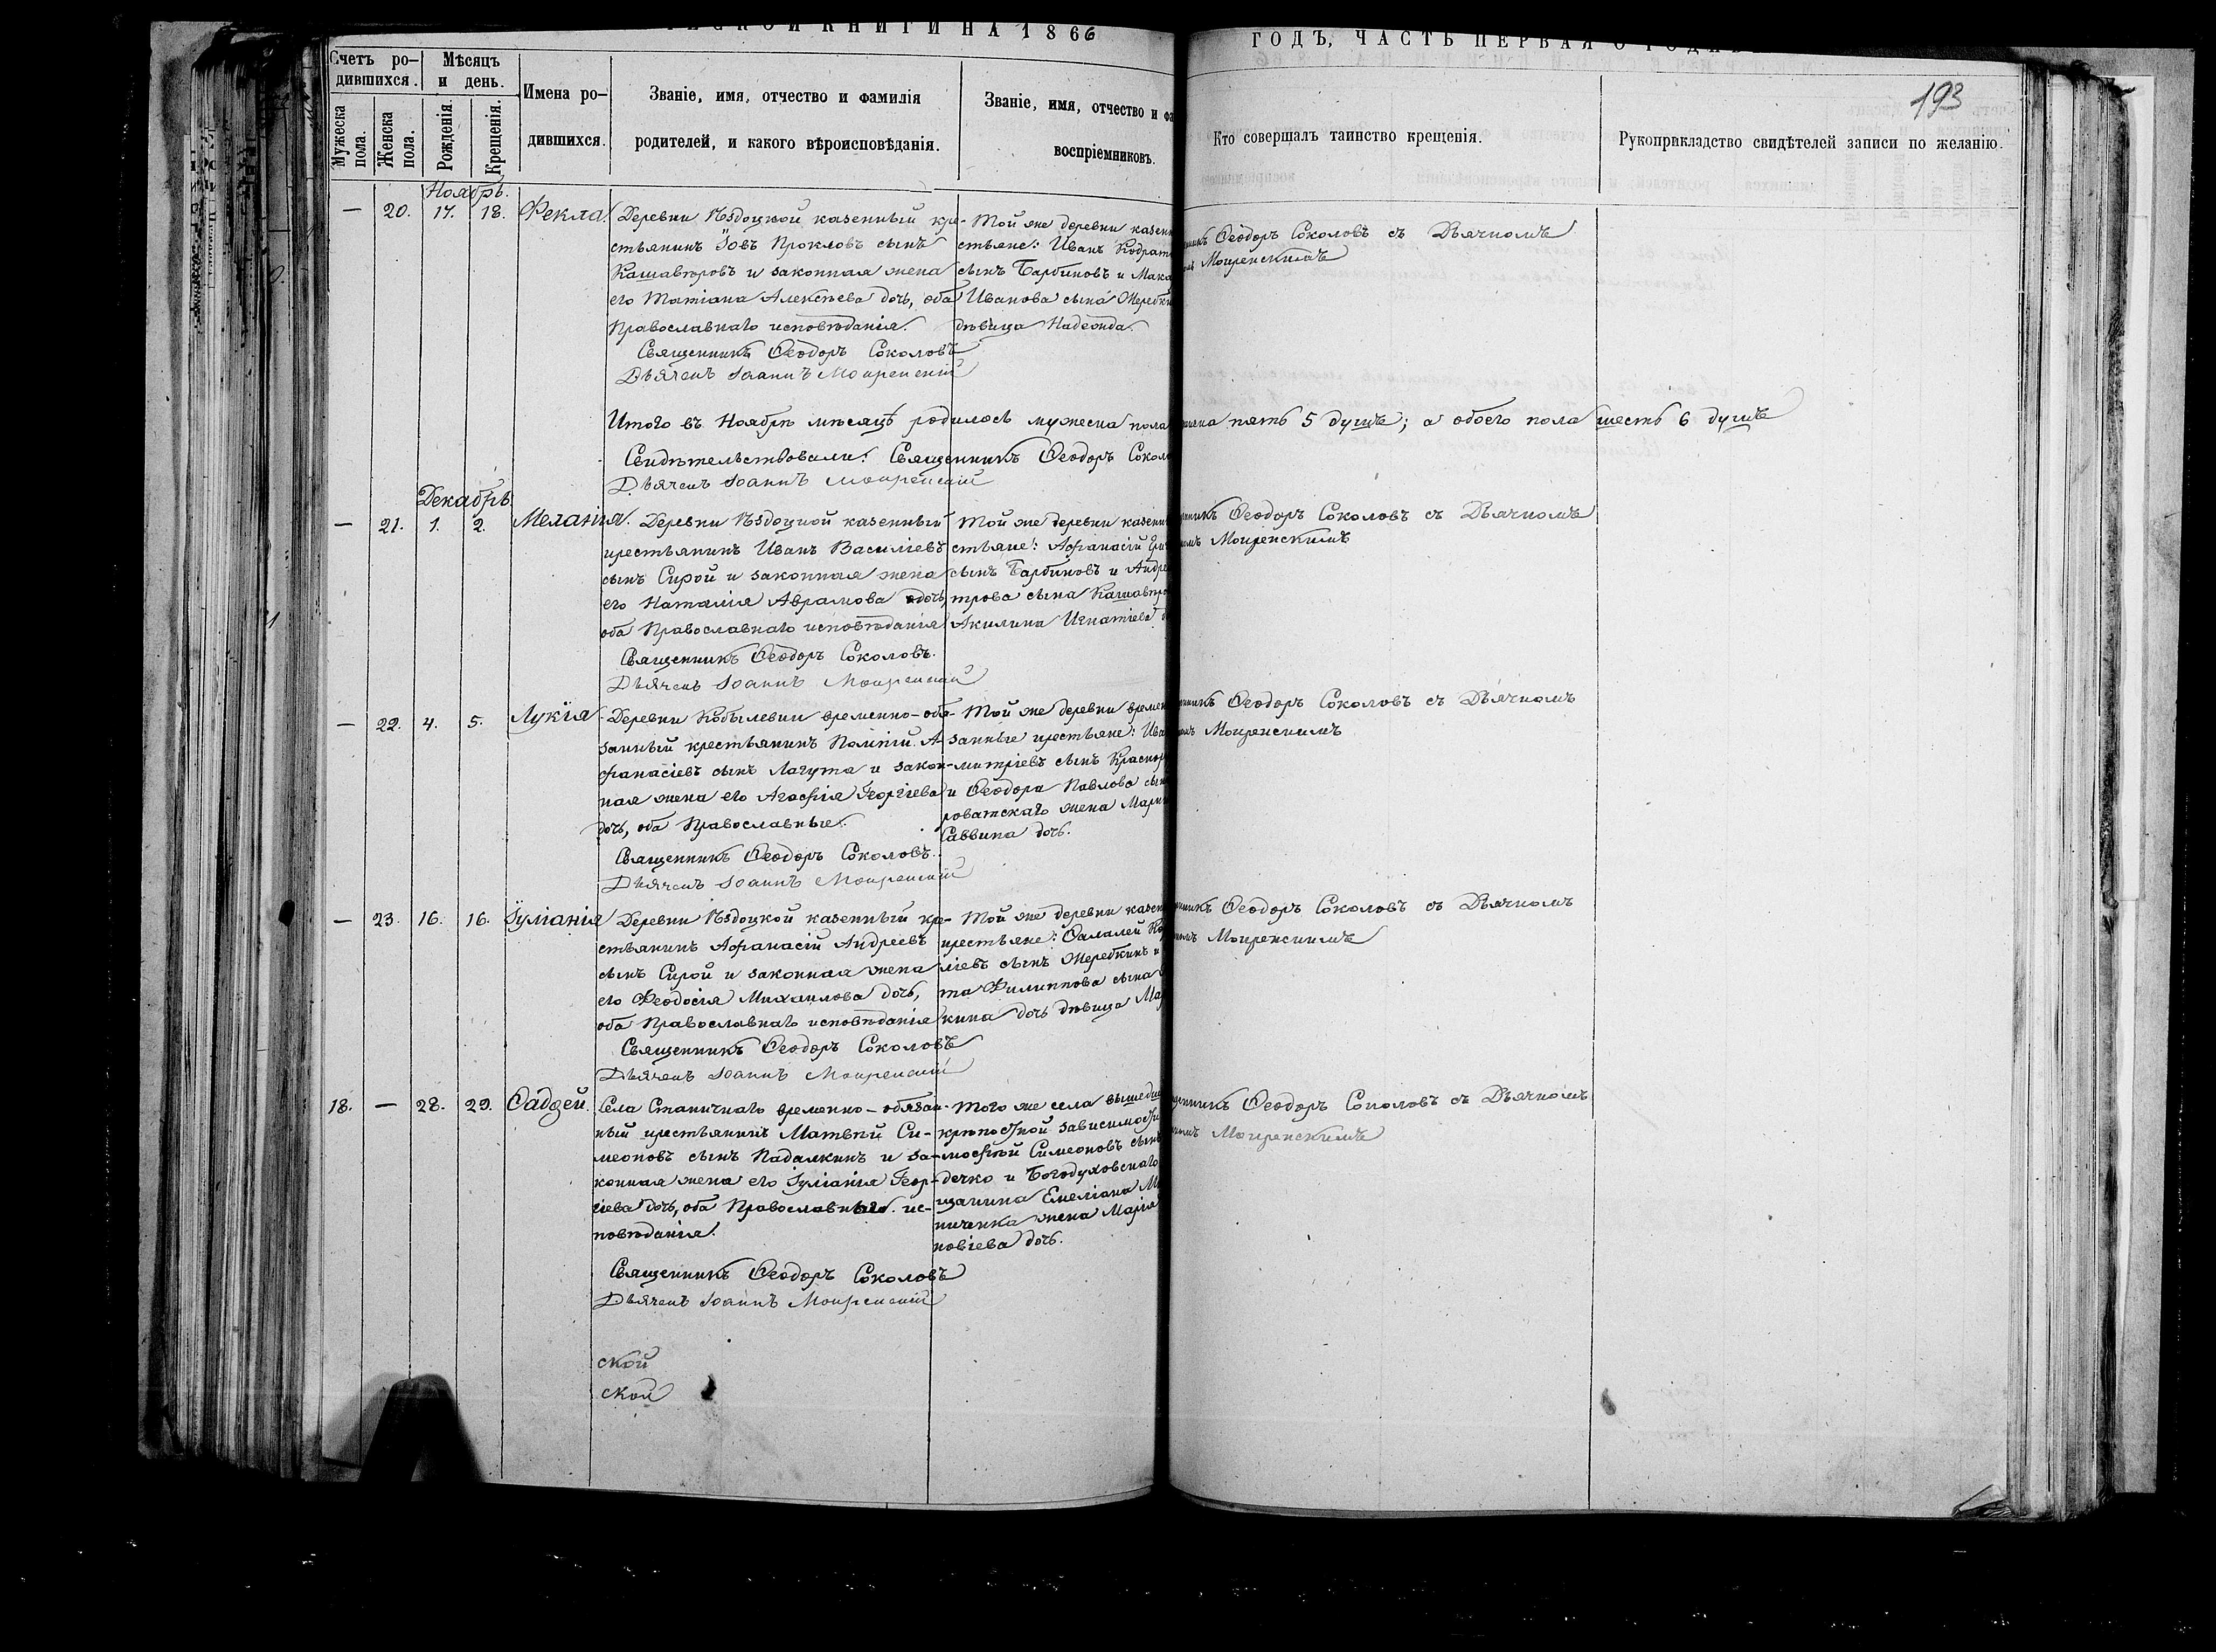 КНИГИ НА 1866
ГОДЪ, ЧАСТЬ ПЕРВАЯ О
193
Счетъ ро-
дившихся.
Мѣсяцъ
и день.
Мужеска пола.
Женска пола.
Рожденія.
Крещенія.
Имена ро-
дившихся.
Званіе, имя, отчество и фамилія
родителей, и какого вѣроисповѣданія.
Званіе, имя, отчество и фа
воспріемниковъ.
Кто совершалъ таинство крещенія.
Рукоприкладство свидѣтелей записи по желанію.
Ноябрь.
— 20. 17. 18. Фекла.
Деревни Ѣздоцкой казенный кре-
стьянинъ Іовъ Прокловъ сынъ
Кашавтровъ и законная жена
его Татіана Алексѣева дочь, оба
Православнаго исповѣданія.
Священникъ Ѳеодоръ Соколовъ
Дьячекъ Іоаннъ Мокренскій
Той же деревни казен
стьяне: Иванъ Кодрат
сынъ Барбиновъ и Мака
Иванова сына Жеребки
дѣвица Надежда.
Ѳеодоръ Соколовъ съ Дьячкомъ
Мокренскимъ
Итого въ Ноябрѣ мѣсяцѣ родилось мужеска пола
пять 5 душъ; а обоего пола шесть 6 душъ
Свидѣтельствовали: Священникъ Ѳеодоръ Сокол
Дьячекъ Іоаннъ Мокренскій
Декабрь.
— 21. 1. 2. Меланія.
Деревни Ѣздоцкой казенный
крестьянинъ Иванъ Василіевъ
сынъ Сирой и законная жена
его Наталія Аврамова дочь,
оба Православнаго исповѣданія
Священникъ Ѳеодоръ Соколовъ.
Дьячекъ Іоаннъ Мокренскій
Той же деревни казен
стьяне: Афанасій
сынъ Барбиновъ и Андре
трова сына Кашавтро
Акилина Игнатіева
Ѳеодоръ Соколовъ съ Дьячкомъ
Мокренскимъ
— 22. 4. 5. Лукія
Деревни Кобылевки временно-обя-
занный крестьянинъ Памтій А-
фанасіевъ сынъ Лагута и закон-
ная жена его Агафія Георгіева
дочь, оба Православные.
Священникъ Ѳеодоръ Соколовъ.
Дьячекъ Іоаннъ Мокренскій
Той же деревни времен
занные крестьяне: Ива
митріевъ сынъ Краснор
и Ѳеодора Павлова сын
роватскаго жена Мари
Саввина дочь.
Ѳеодоръ Соколовъ съ Дьячкомъ
Мокренскимъ
— 23. 16. 16. Іуліанія
Деревни Ѣздоцкой казенный кре-
стьянинъ Афанасій Андреевъ
сынъ Сирой и законная жена
его Феодосія Михаилова дочь,
оба Православнаго исповѣданія
Священникъ Ѳеодоръ Соколовъ
Дьячекъ Іоаннъ Мокренскій
Той же деревни казен
крестьяне: Ѳалалей Ко
ліевъ сынъ Жеребкинъ и
та Филиппова сына
кина дочь дѣвица Мар
Ѳеодоръ Соколовъ съ Дьячкомъ
Мокренскимъ
18. — 28. 29. Ѳаддей.
Села Станичнаго временно-обязан-
ный крестьянинъ Матвѣй Си-
меоновъ сынъ Падалкинъ и за-
конная жена его Іуліанія Геор-
гіева дочь, оба Православнаго ис-
повѣданія.
Священникъ Ѳеодоръ Соколовъ
Дьячекъ Іоаннъ Мокренскій
Того же села вышедш
крѣпостной зависимости
мофѣй Симеоновъ сынъ
дечко и Богодуховскаго
щанина Емеліана М
ниченка жена Марія
новіева дочь.
Ѳеодоръ Соколовъ съ Дьячкомъ
Мокренскимъ
ской
ской